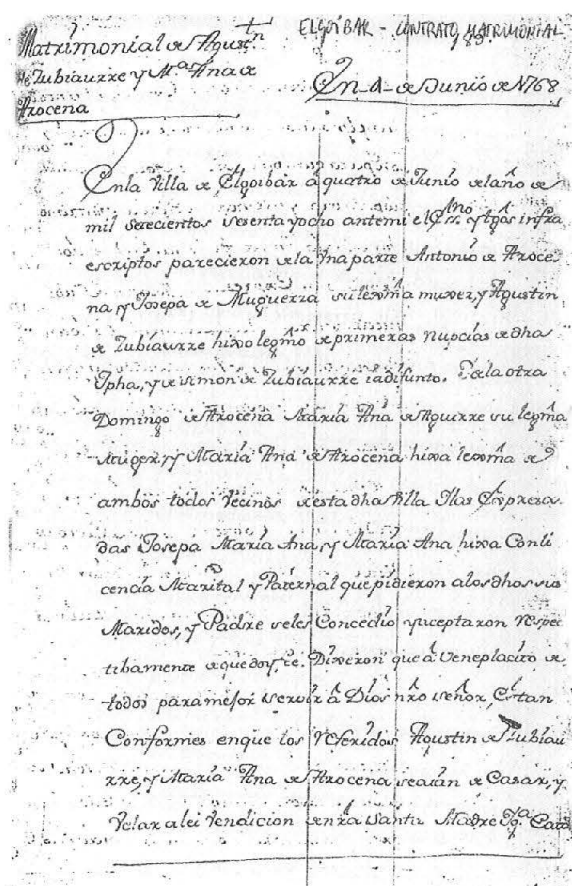 ELGOIBAR - CONTRATO MATRIMONIAL
Matrimonial de Agustn
de Zubiaurre y Ma Ana de
Arocena
En 4 de Junio de 1768
En la Villa de Elgoibar à quatro de Junio del año de
mil setecientos sesenta y ocho ante mi el Essno y tgôs infra
escriptos parecieron de la una parte Antonio de Aroce
na, y Josepa de Muguerza su lexma muxer, y Agustin
de Zubiaurre hixo legmo de primeras Nupcias de dha
Jpha, y de Simon de Zubiaurre ia difunto. E de la otra
Domingo de Arocena Maria Ana de Aguirre su legma
Muger, y Maria Ana de Arocena hixa lexma de
ambos todos Vecinos de esta dha Villa Ilas Expresa
das Josepa Maria Ana, y Maria Ana hixa Con li
cencia Marital y Paternal que pidieron alos dhos sus
Maridos, y Padre se les Concedio y aceptaron respec
tibamente de que doy fe. Dixeron que à Veneplacito de
todos para mejor servir à Dios nro señor, Estan
Conformes en que los referidos Agustin de Zubiau
rre, y Maria Ana de Arocena se aian de Casar, y
Velar a lei Vendicion de nra Santa Madre Iga Cato